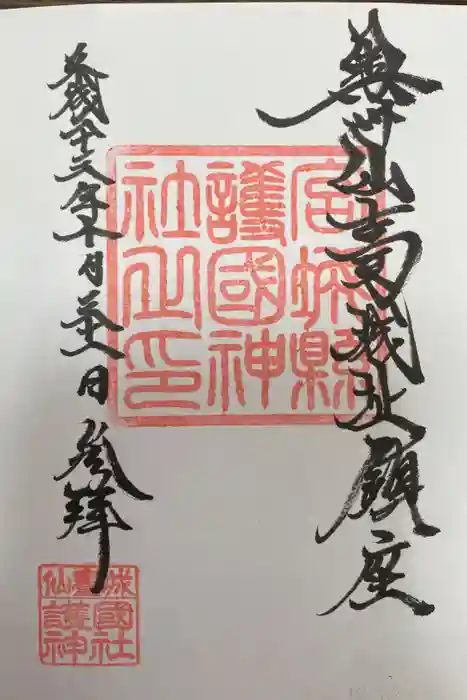 奥州仙臺城址鎮座
宮城縣
護國神
社之印
平成廿三年十月日
参拝
仙臺城
護國
神社